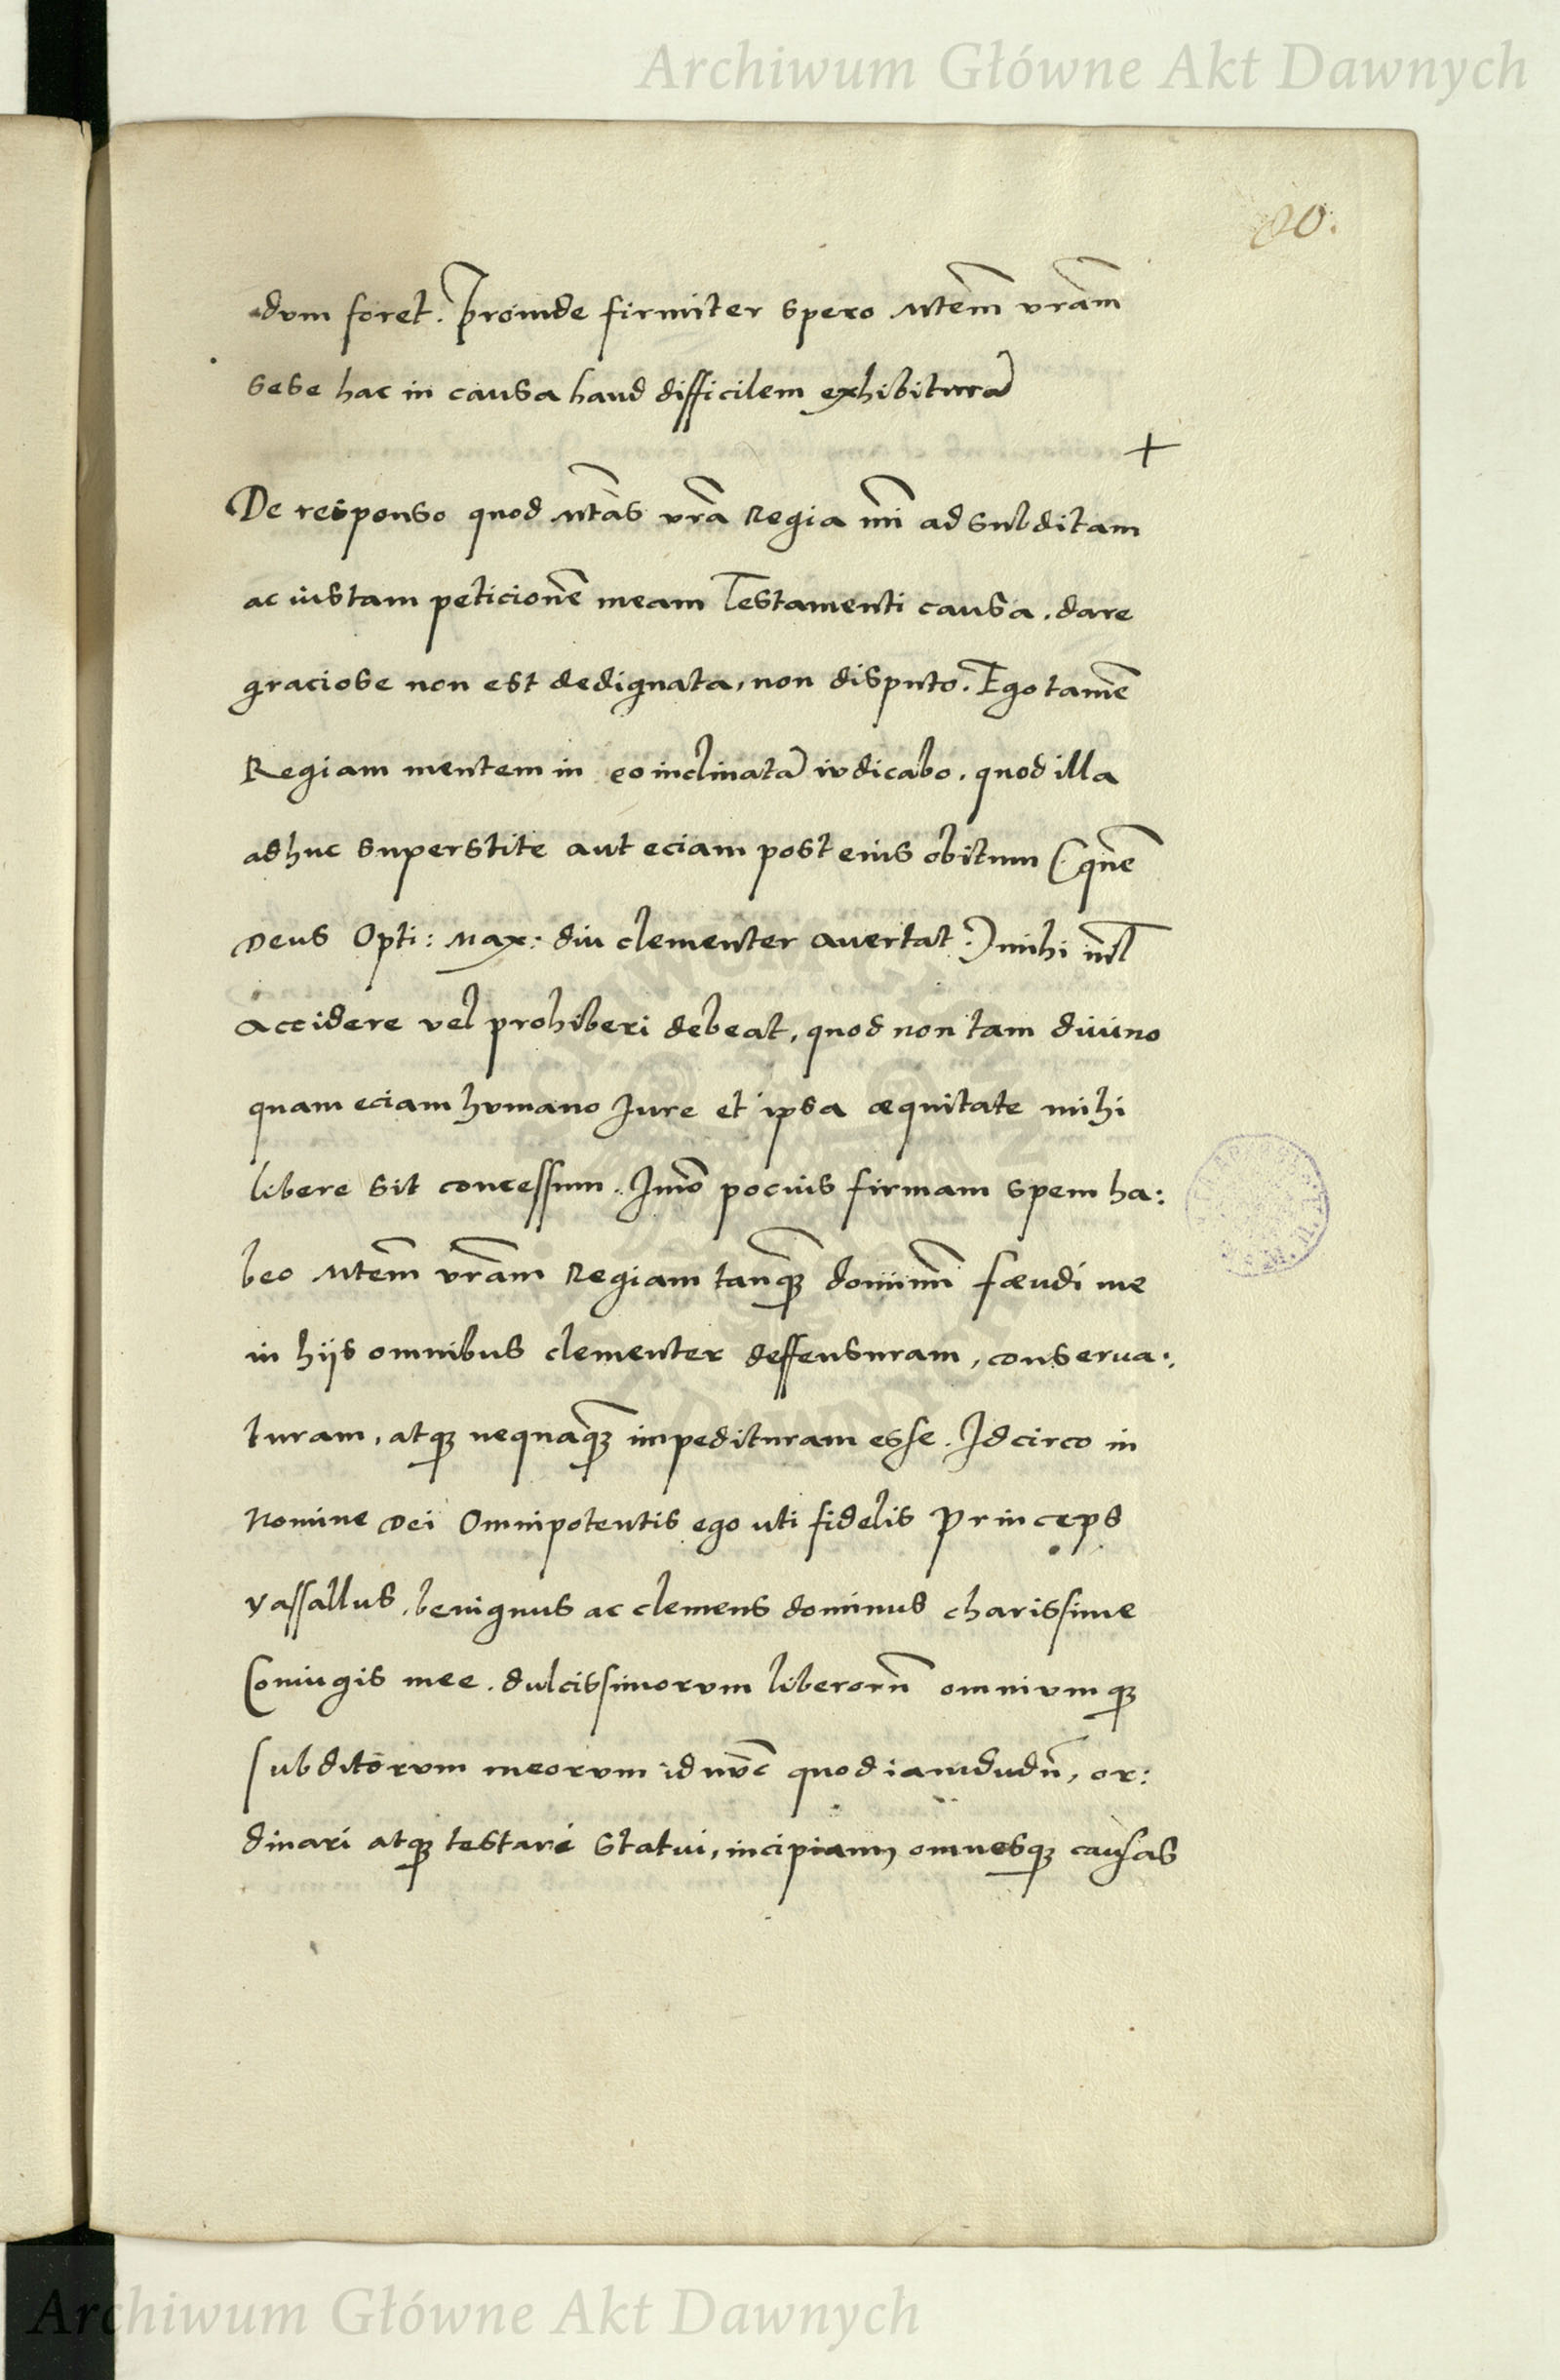 Archiwum Główne Akt Dawnych
80.
dum foret. Proinde firmiter spero Mtem vram
sese hac in causa haud difficilem exhibitura
+
De responso quod Mtas vra Regia mi ad subditam
ac iustam peticione meam Testamenti causa. dare
graciose non est dedignata, non disputo. Ego tame
Regiam mentem in eo inclinata iudicabo. quod illa
adhuc superstite aut eciam post eius obitum (: que
Deus Opti: Max: diu clementer avertat :) mihi
accidere vel prohiberi debeat, quod non tam divino
quam eciam humano Jure et ipsa æquitate mihi
libere sit concessum. Imo pocius firmam spem ha:
beo Mtem vram Regiam tanq dominum fæudi me
in hijs omnibus clementer deffensuram, conserua:
turam, atq nequaq impedituram esse. Idcirco in
Nomine Dei Omnipotentis ego uti fidelis Princeps
Vassallus, benignus ac clemens dominus charissime
Coniugis mee. dulcissimorum liberoru omniumq
subditorum meorum id nuc quod iamdudu, or:
dinari atq testari statui, incipiam omnesq causas
Archiwum Główne Akt Dawnych